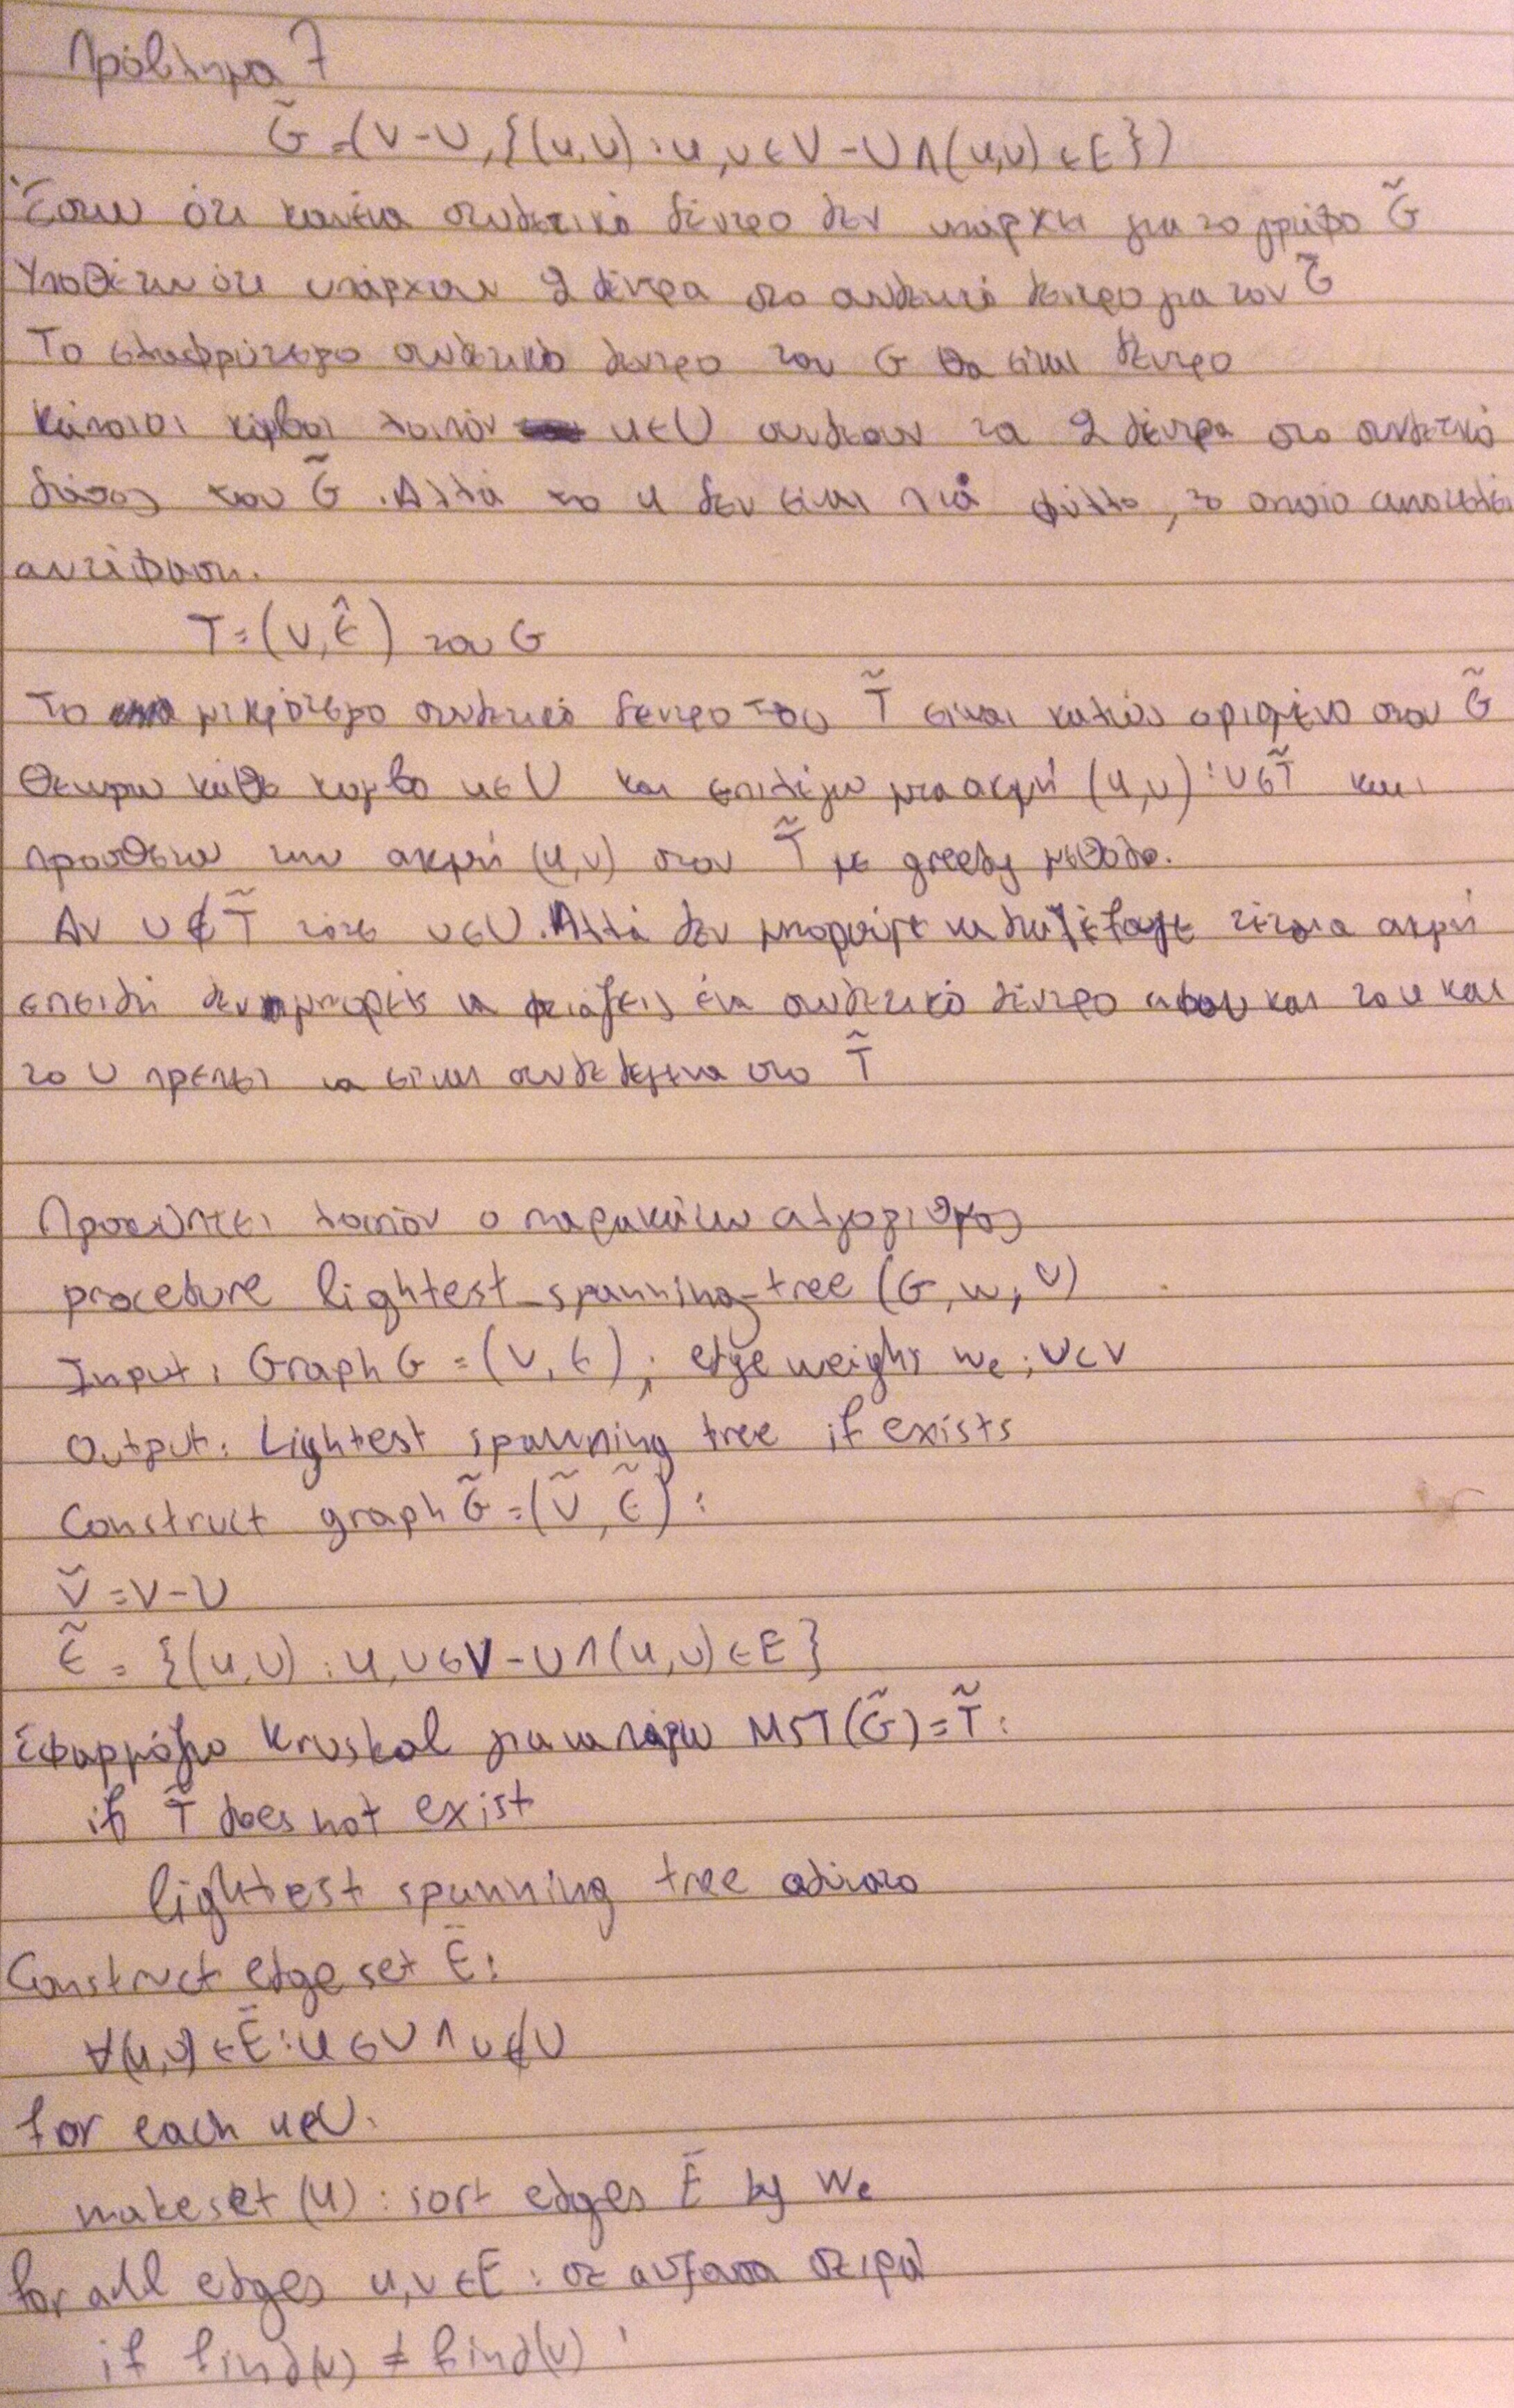 Πρόβλημα 7
G̃ = (V-U, {(u,v) : u,v ∈ V-U ∧ (u,v) ∈ E})
Έστω ότι κανένα συνδετικό δέντρο δεν υπάρχει για το γράφο G̃
Υποθέτω ότι υπάρχουν 2 δέντρα στο συνδετικό δέντρο για τον G̃
Το ελαφρύτερο συνδετικό δεντρο του G θα είναι δεντρο
Κάποιοι κόμβοι λοιπόν u∈U συνδεουν τα 2 δέντρα στο συνδετικό
δάσος του G̃. Αλλά το u δεν είναι πιά φύλλο, το οποίο αποτελεί
αντίφαση.
T = (V, Ê) του G
Το μικρότερο συνδετικό δεντρο του T̃ είναι καλώς ορισμένο στον G̃
Θεωρω κάθε κομβο u∈U και επιλέγω μια ακμή (u,v) : v∈T̃ και
προσθετω την ακμή (u,v) στον T̃ με greedy μέθοδο.
Αν v∉T̃ τότε v∈U. Αλλά δεν μπορούμε να διαλέξουμε τέτοια ακμή
επειδή δεν μπορείς να φτιάξεις ένα συνδετικό δέντρο αφου και το u και
το v πρεπει να είναι συνδεδεμενα στο T̃
Προκύπτει λοιπόν ο παρακάτω αλγοριθμος
procedure lightest_spanning_tree (G, w, U)
Input: Graph G = (V, E); edge weighs we; U⊂V
Output: Lightest spanning tree if exists
Construct graph G̃ = (Ṽ, Ẽ):
Ṽ = V-U
Ẽ = {(u,v) : u,v∈V-U ∧ (u,v) ∈ E}
Εφαρμόζω Kruskal για να πάρω MST(G̃) = T̃:
if T̃ does not exist
lightest spunning tree αδύνατο
Construct edge set Ē:
∀(u,v) ∈ Ē : u∈U ∧ v∉U
for each u∈U.
makeset (u) : sort edges Ē by we
for all edges u,v ∈ Ē : σε αυξουσα σειρα
if find(u) ≠ find(v) :